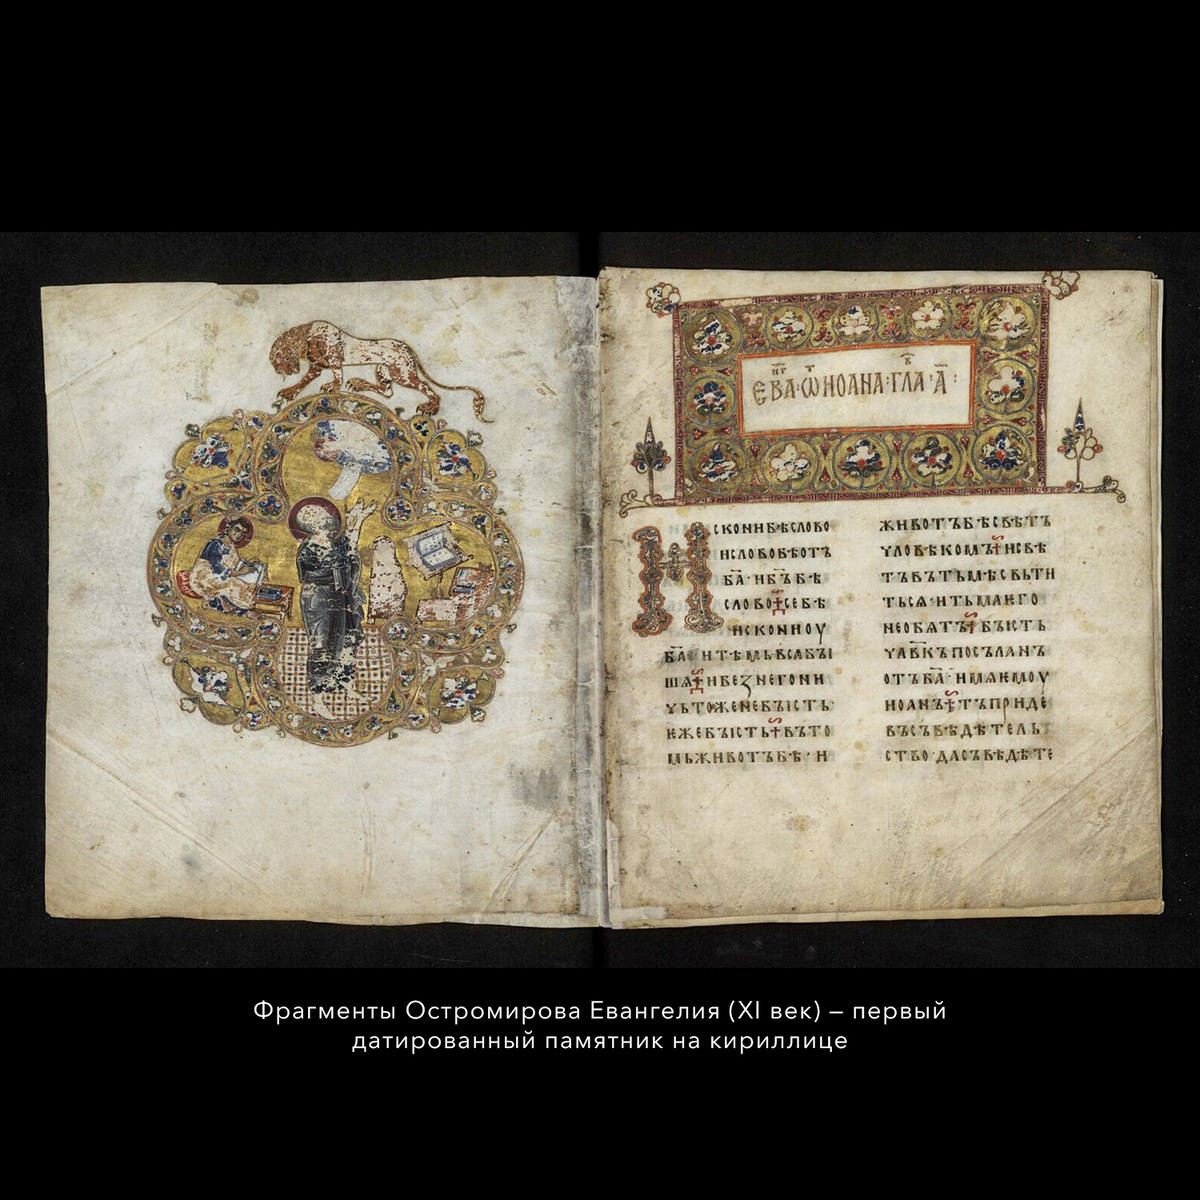 ЕВА·ѾИОАНА·ГЛА·А҃:
ИСКОНИБѢСЛОВО
ИСЛОВОБѢОТЪ
БА҃·ИБ҃ЪБѢ
СЛОВО·СЕБѢ
ИСКОНИОУ
БА҃·ИТѢМЬВСѦБЫ
ШѦ·ИБЕꙀНЕГОНИ
ЧЬТОЖЕНЕБЫСТЬ·
ѤЖЕБЫСТЬ·ВЪТО
МЬЖИВОТЪБѢ·И
ЖИВОТЪБѢСВѢТЪ
ЧЛОВѢКОМЪ·ИСВѢ
ТЪВЪТЬМѢСВЬТИ
ТЬСѦ·ИТЬМАѤГО
НЕОБѦТЪ·БЫСТЬ
ЧЛ҃ВКЪПОСЪЛАНЪ
ОТЪБА҃·ИМѦѤМОУ
ИОАНЪ·ТЪПРИДЕ
ВЪСЪВѢДѢТЕЛЬ
СТВО·ДАСЪВѢДѢТЕ
Фрагменты Остромирова Евангелия (XI век) – первый
датированный памятник на кириллице